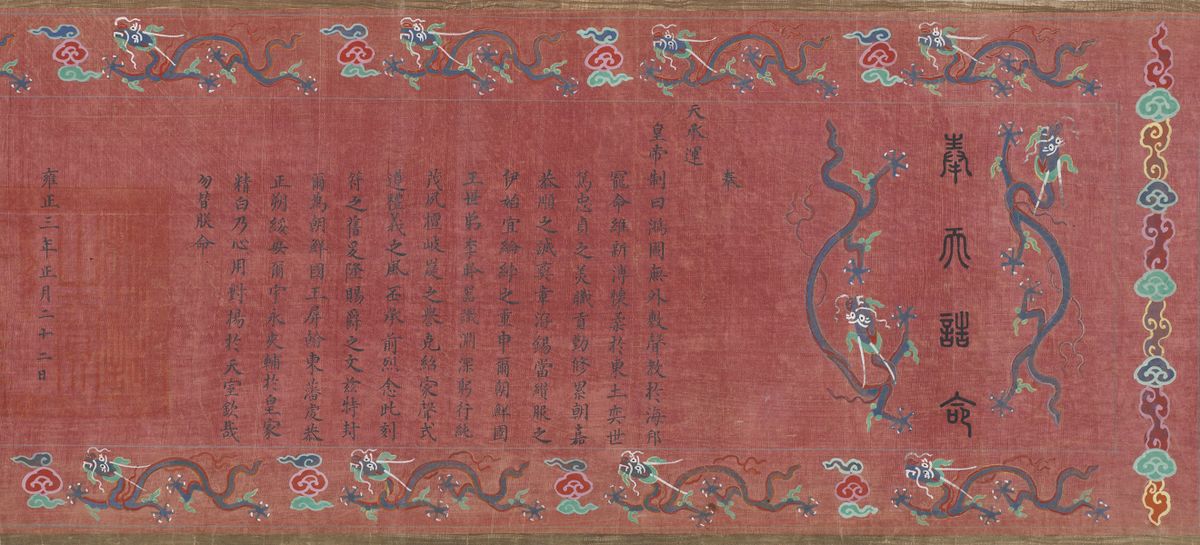 奉天誥命
奉
天承運
皇帝制曰鴻圖無外敷聲教於海邦
寵命維新溥懷柔於東土奕世
篤忠貞之美職貢勤修累朝嘉
恭順之誠袞章洊錫當纘服之
伊始宜綸綍之重申爾朝鮮國
王世弟李昑器識淵深躬行純
茂夙擅岐嶷之譽克紹家聲式
遵禮義之風丕承前烈念此剖
符之舊爰隆賜爵之文茲特封
爾為朝鮮國王屏翰東藩虔恭
正朔綏安爾宇永夾輔於皇家
精白乃心用對揚於天室欽哉
勿替朕命
雍正三年正月二十二日